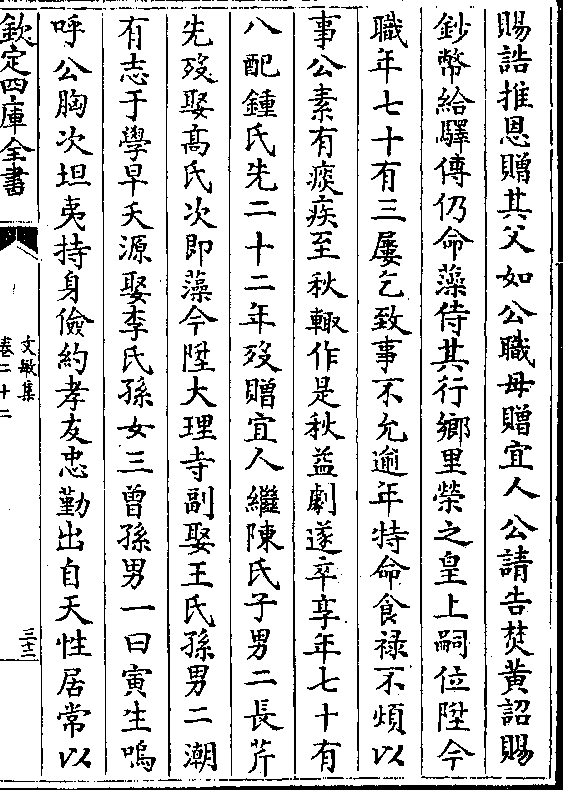 賜誥推恩贈其父如公職母贈宜人公請告焚黃詔賜
鈔幣給驛傳仍命藻侍其行鄉里榮之皇上嗣位陞今
職年七十有三屢乞致事不允逾年特命食祿不煩以
事公素有痰疾至秋輙作是秋益劇遂卒享年七十有
八配鍾氏先二十二年歿贈宜人繼陳氏子男二長芹
先歿娶髙氏次即藻今陞大理寺副娶王氏孫男二潮
有志于學早夭源娶李氏孫女三曾孫男一曰寅生嗚
呼公胸次坦夷持身儉約孝友忠勤出自天性居常以
欽定四庫全書
文敏集
卷二十二
三十三